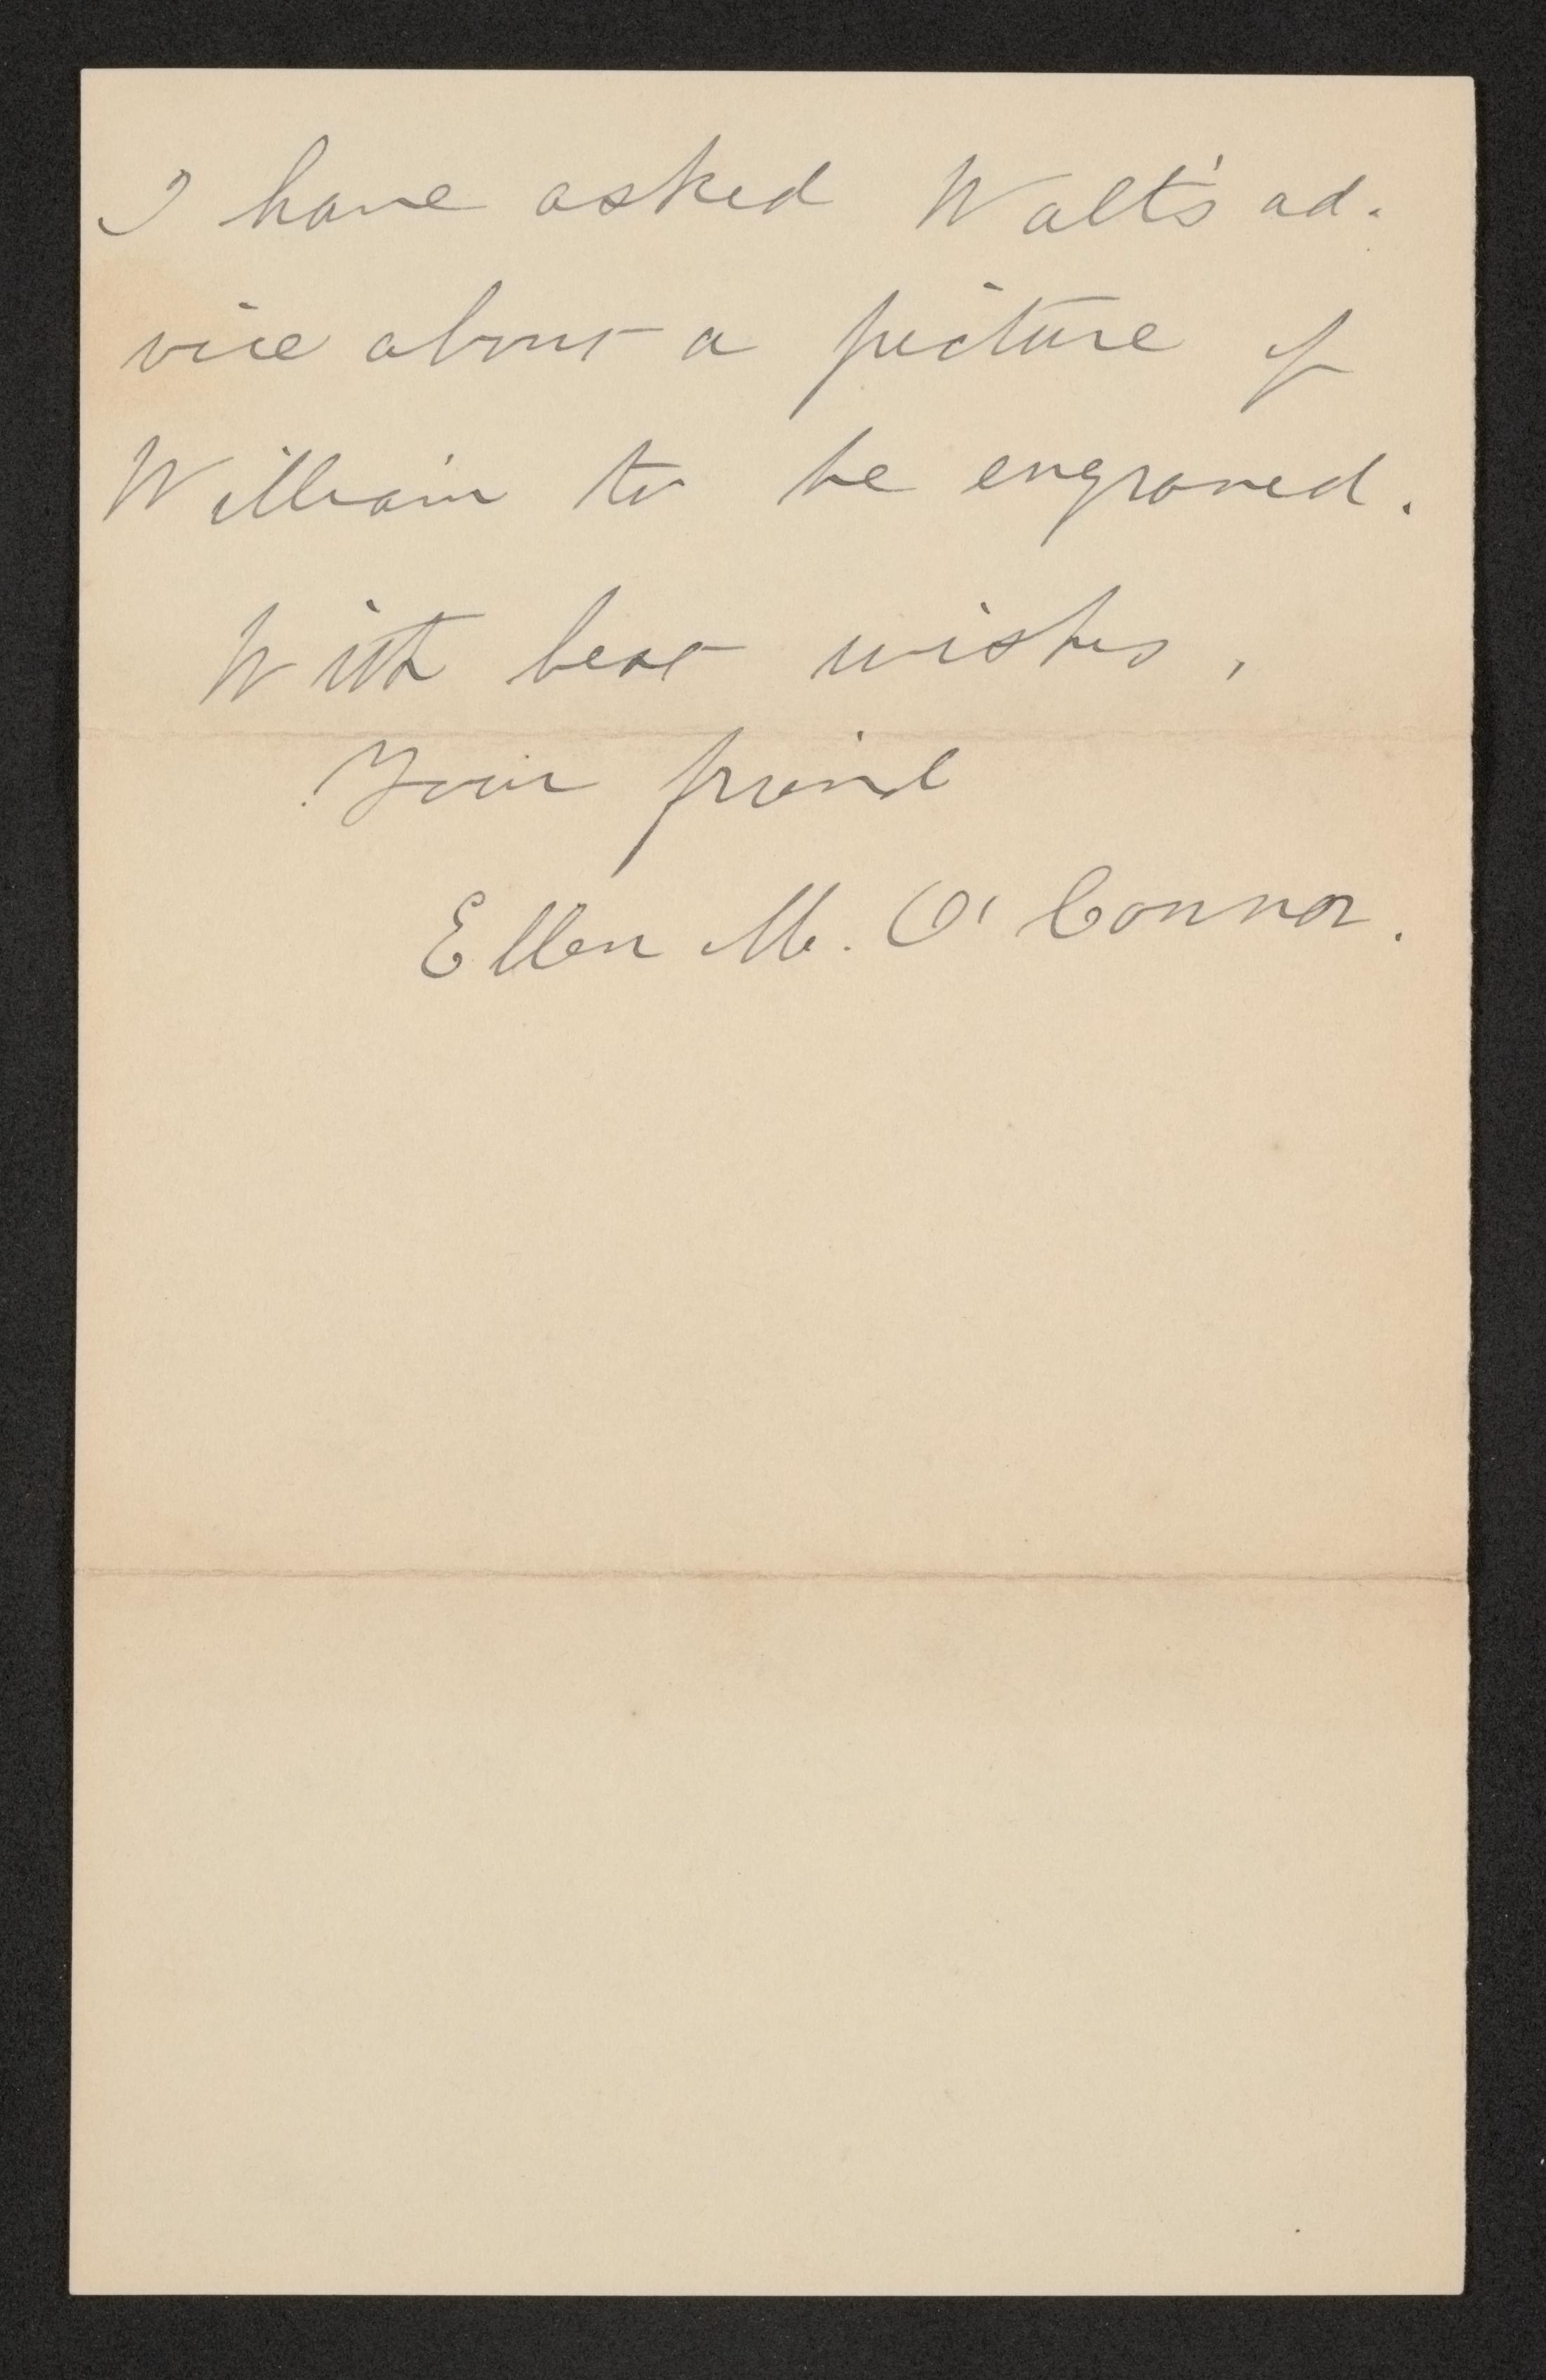 I have asked Walt's ad-
vice about a picture of
William to be engraved.
With best wishes,
Your friend
Ellen M. O'Connor.